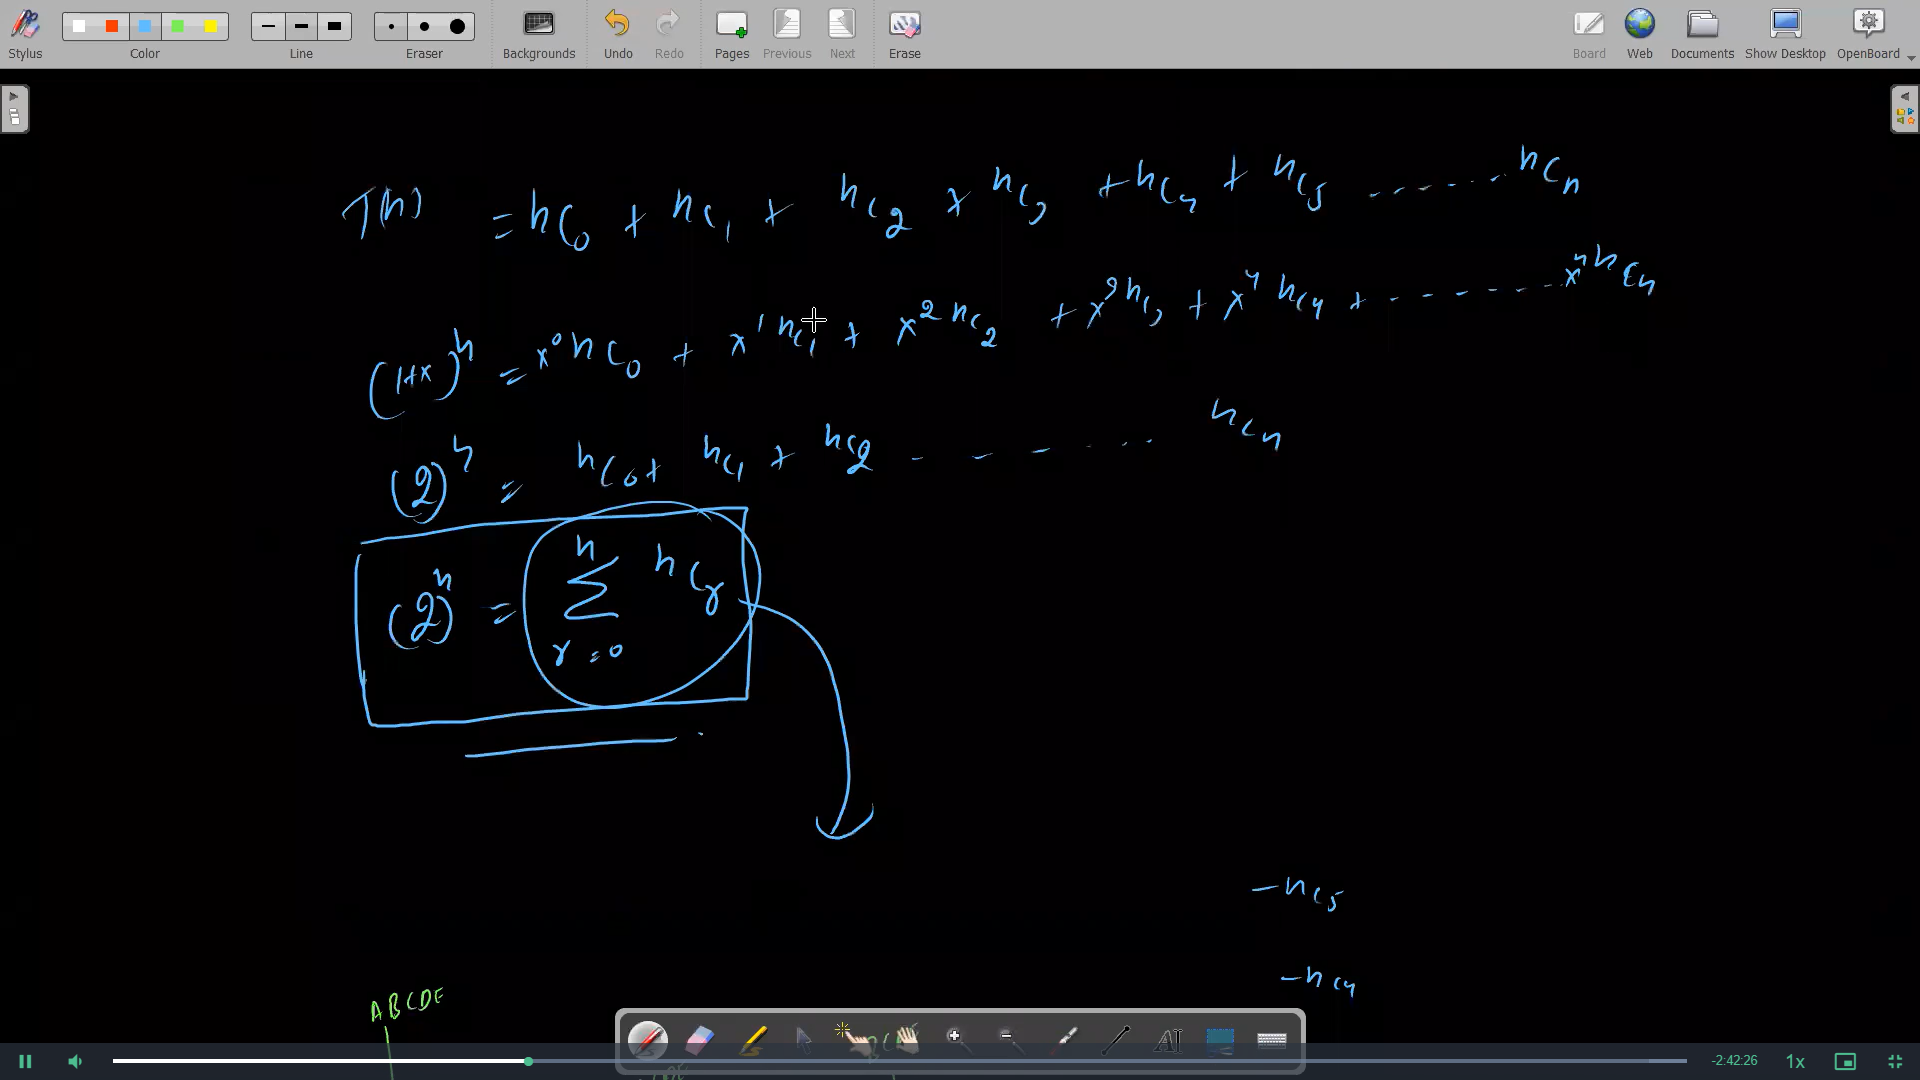 Stylus Color Line Eraser Backgrounds Undo Redo Pages Previous Next Erase Board Web Documents Show Desktop OpenBoard
T(n) = nC0 + nC1 + nC2 + nC3 + nC4 + nC5 ....... nCn
(1+x)^n = x^0 nC0 + x^1 nC1 + x^2 nC2 + x^3 nC3 + x^4 nC4 + - - - - - ... x^n nCn
(2)^n = nC0 + nC1 + nC2 - - - ... nCn
(2)^n = n Σ r=0 nCr
- nC5
- nC4
ABCDE
-2:42:26 1x